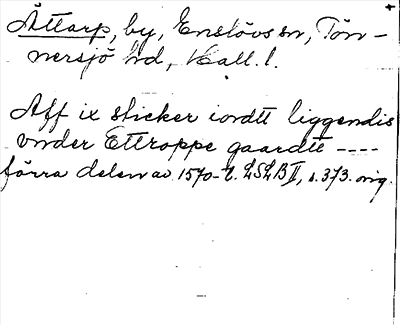 Ättarp, by, Enslövs sn, Tön-
nersjö hd, Hall. l.
Aff ix sticker iordtt liggendis
vnder Ettroppe gaardtt ----
förra delen av 1570-t. LSLB II, s. 373. orig.